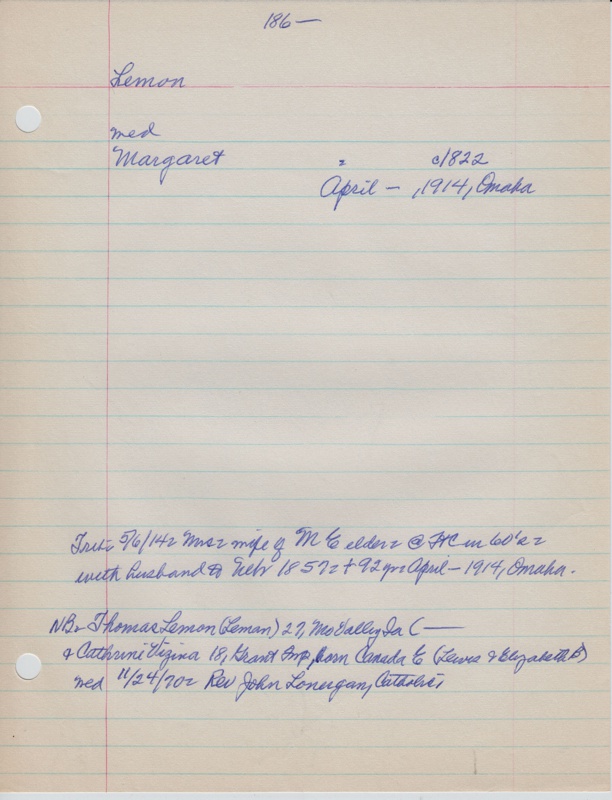 186—
Lemon
med
Margaret = c1822
April — , 1914, Omaha
Trib= 5/6/14= Mrs= wife of M E elder= @ FtC in 60's=
with husband to Nebr 1857= + 92 yrs April — 1914, Omaha.
NB= Thomas Lemon (Leman) 27, Mo Vally Ia (—
& Cathrine Vizina 18, Grant Imp, born Canada E (Lewis & Elizabeth B)
med 11/24/70= Rev John Lonergan, Catholic,